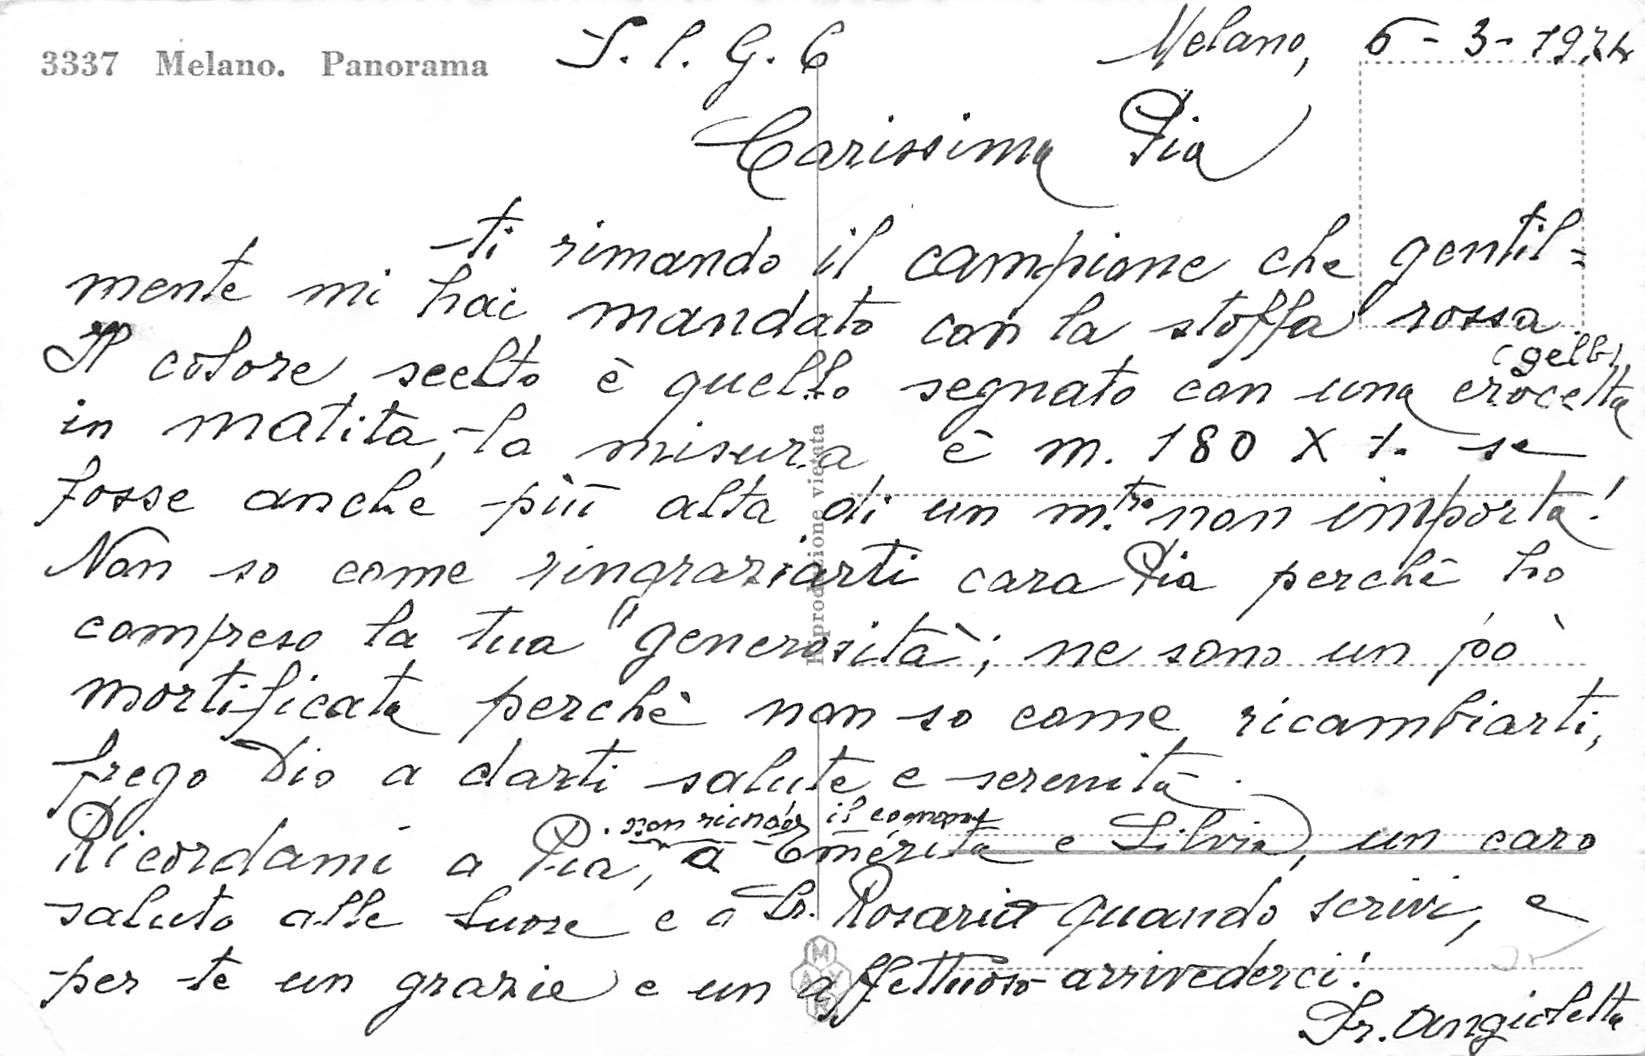 3337 Melano. Panorama
S. l. G. C
Melano, 6-3-1974
Carissima Pia
ti rimando il campione che gentil=
mente mi hai mandato con la stoffa rossa.
Il colore scelto è quello segnato con una crocetta
(gelb)
in matita, la misura è m. 180 X 1. se
fosse anche più alta di un m.tro non importa!
Non so come ringraziarti cara Pia perchè ho
compreso la tua "generosità"; ne sono un pò
mortificata perchè non so come ricambiarti,
prego Dio a darti salute e serenità.
non ricordo il cognome
Ricordami a Pia, a Emerita e Silvia, un caro
saluto alle Suore e a Sr. Rosaria quando scrivi, e
per te un grazie e un affettuoso arrivederci!
Sr. Angioletta
Riproduzione vietata